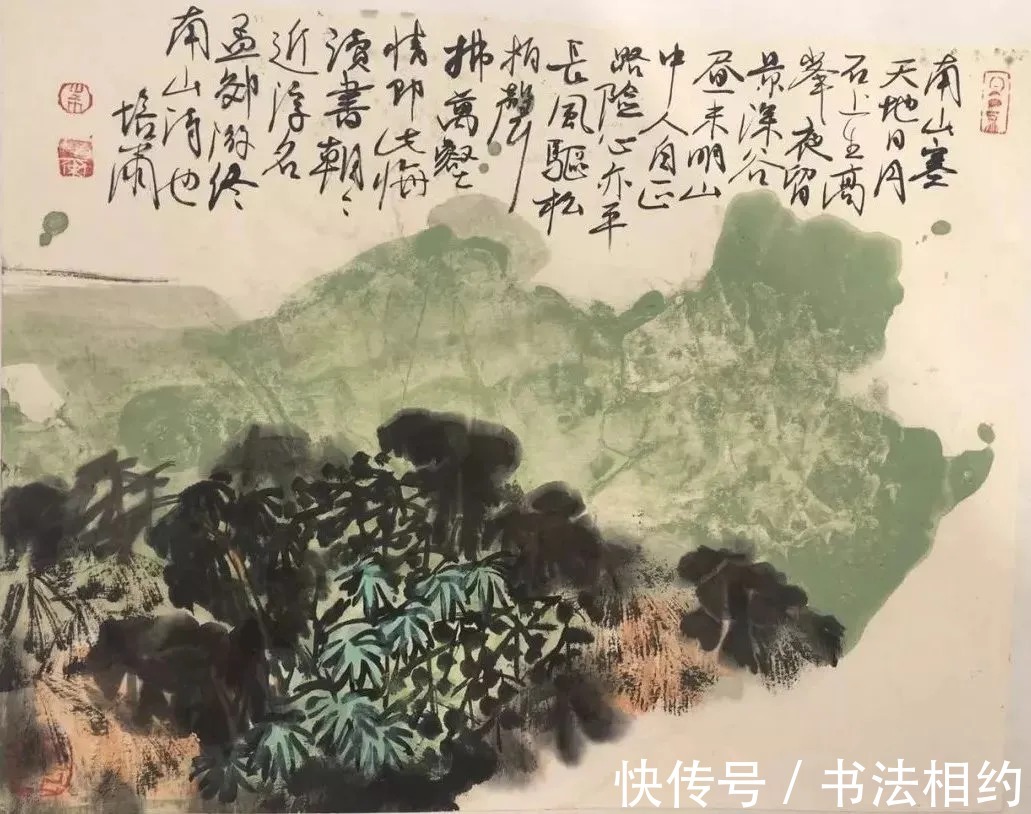 南山塞
天地日月
石上生高
峯夜留
景深谷
昼未明山
中人自正
路险心亦平
長風驅松
柏聲
拂萬壑
情即此悔
讀書朝〻
近浮名
孟郊游终
南山诗也
快传号 / 书法相约